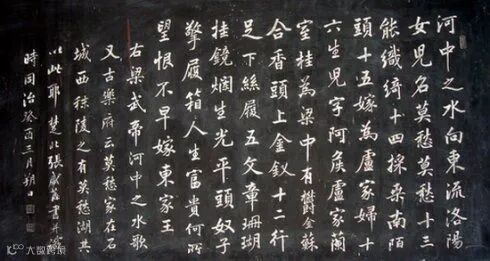 河中之水向東流洛陽
女兒名莫愁莫愁十三
能織綺十四採桑南陌
頭十五嫁為盧家婦十
六生兒字阿侯盧家蘭
室桂為梁中有鬱金蘇
合香頭上金釵十二行
足下絲履五文章珊瑚
挂鏡爛生光平頭奴子
擎履箱人生富貴何所
望恨不早嫁東家王
右梁武帝河中之水歌
又古樂府云莫愁家在石
城西秣陵之有莫愁湖其
以此耶楚北張
時同治癸酉三月朔日
大数跨境